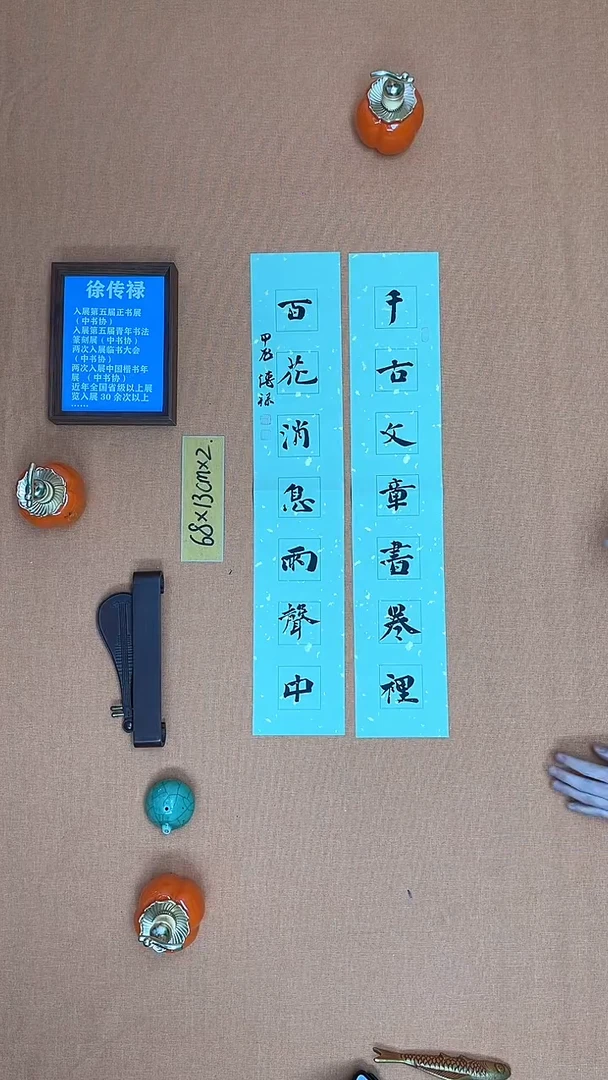 千古文章書卷裡
百花消息雨聲中
甲辰 傳禄
徐传禄
入展第五届正书展
（中书协）
入展第五届青年书法
篆刻展（中书协）
两次入展临书大会
（中书协）
两次入展中国楷书年
展 （中书协）
近年全国省级以上展
览入展 30 余次以上
......
68×13cm×2.